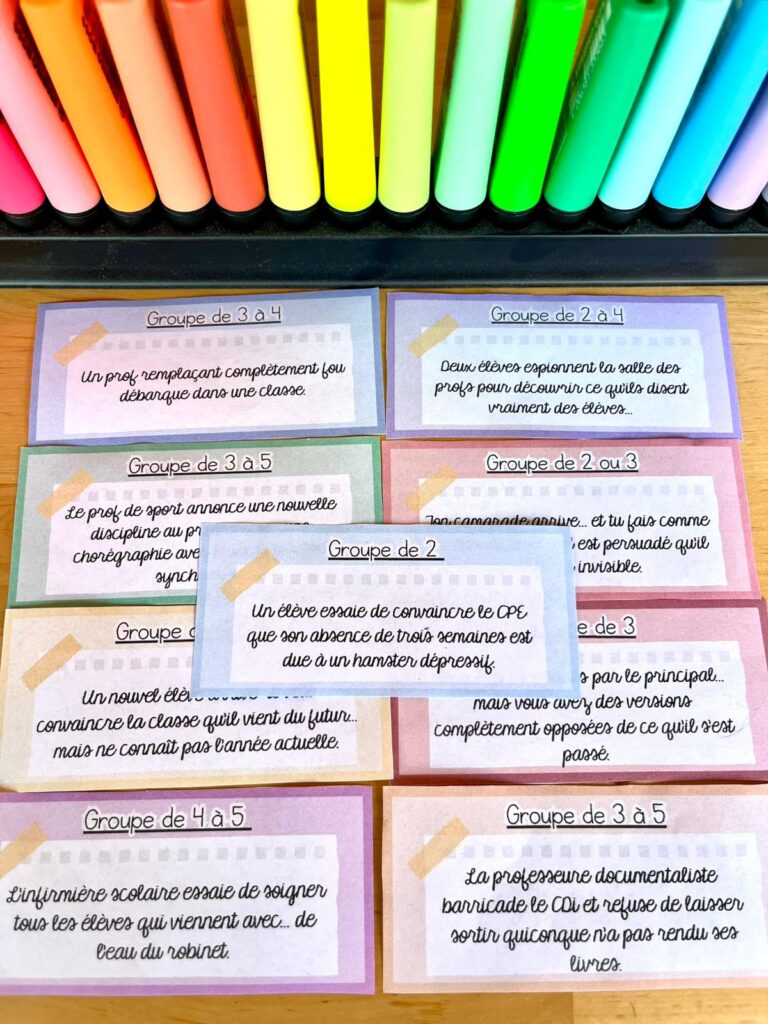 Groupe de 3 à 4
Un prof remplaçant complètement fou
débarque dans une classe.
Groupe de 2 à 4
Deux élèves espionnent la salle des
profs pour découvrir ce qu'ils disent
vraiment des élèves...
Groupe de 3 à 5
Le prof de sport annonce une nouvelle
discipline au
chorégraphie
Groupe de 2 ou 3
Ton camarade arrive... et tu fais comme
est persuadé qu'il
invisible.
Groupe de 2
Un élève essaie de convaincre le CPE
que son absence de trois semaines est
due à un hamster dépressif.
Groupe
Un nouvel
convaincre la classe qu'il vient du futur...
mais ne connaît pas l'année actuelle.
de 3
par le principal...
mais vous avez des versions
complètement opposées de ce qu'il s'est
passé.
Groupe de 4 à 5
L'infirmière scolaire essaie de soigner
tous les élèves qui viennent avec... de
l'eau du robinet.
Groupe de 3 à 5
La professeure documentaliste
barricade le CDi et refuse de laisser
sortir quiconque n'a pas rendu ses
livres.